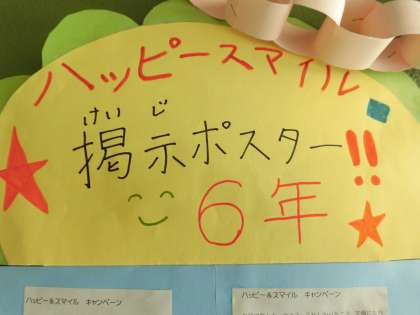 ハッピースマイル
けいじ
掲示ポスター!!
6年
ハッピー&スマイル キャンペーン
ハッピー&スマイル キャンペーン